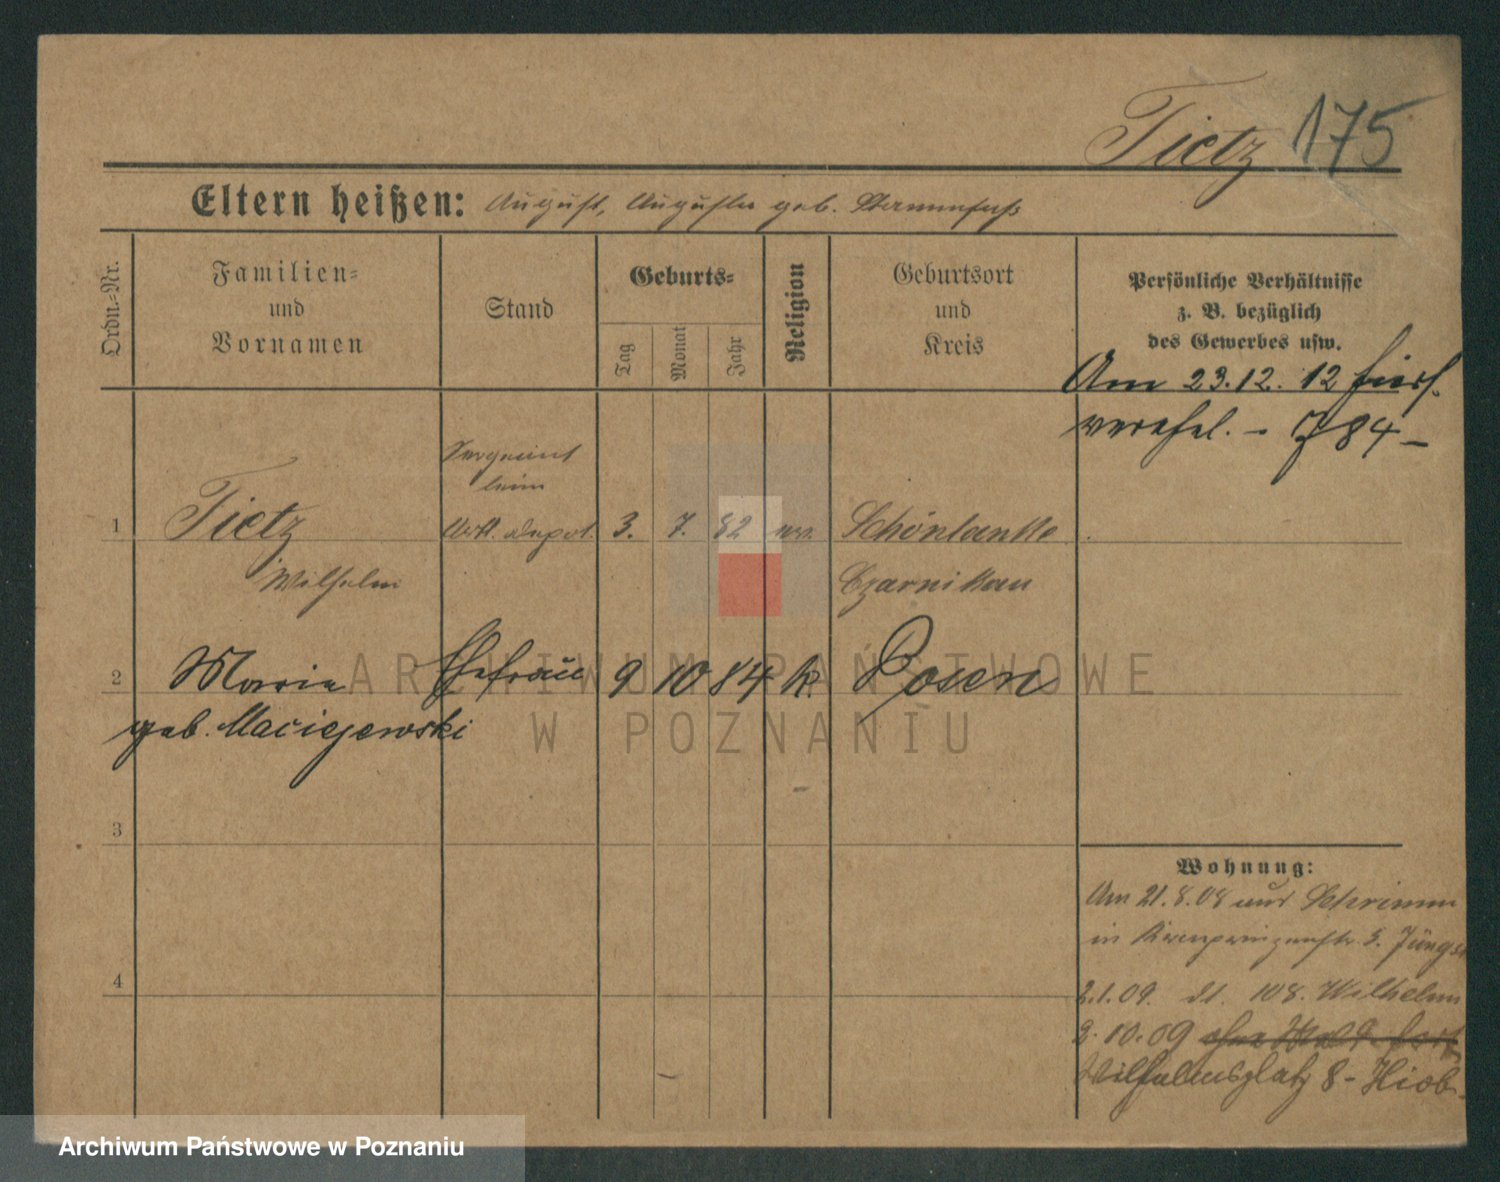 Tietz 175
Eltern heißen: August, Auguste geb. Stammfuß
Ordn.-Nr.
Familien-
und
Vornamen
Stand
Geburts-
Tag
Monat
Jahr
Religion
Geburtsort
und
Kreis
Persönliche Verhältnisse
z. B. bezüglich
des Gewerbes usw.
Am 23.12.12 hiers.
verehel. – 784 –
Sergeant
beim
1 Tietz Artl. Depot. 3. 7. 82 ev. Schönlanke
Wilhelm Czarnikau
2 Maria Ehefrau 9 10 84 k. Posen
geb. Maciejewski
3
Wohnung:
Am 21.8.08 aus Schrimm
in Kronprinzenstr. 5. Jüngst
4
2.1.09. St. 108. Wilhelm
2.10.09
Wilhelmsplatz 8 – Hiob
ARCHIWUM PAŃSTWOWE
W POZNANIU
Archiwum Państwowe w Poznaniu